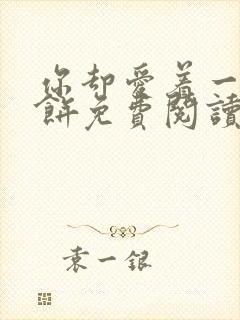 你却爱着一
餅免費閱讀
袁一银